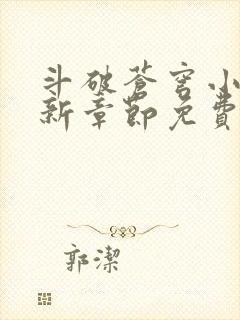 斗破苍穹小
新章節免費
郭潔